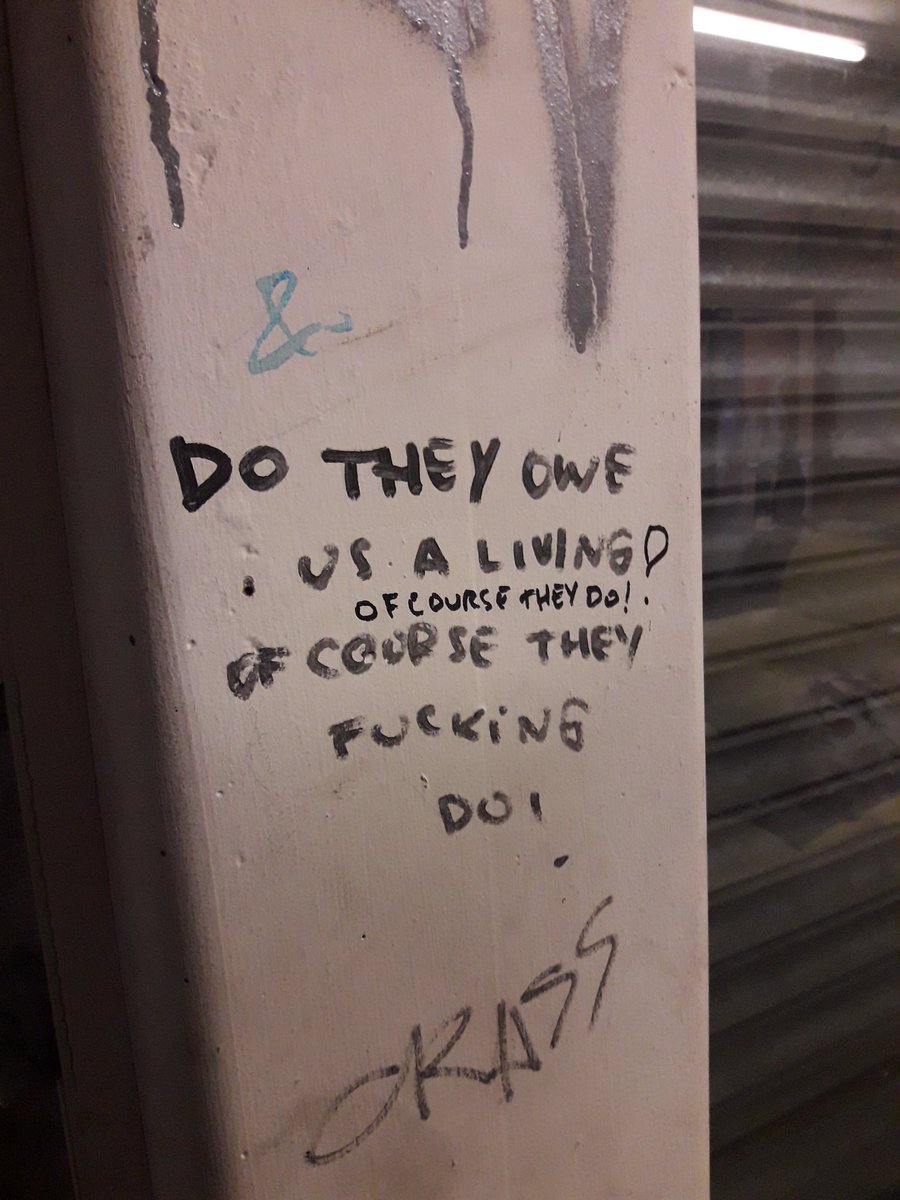 &
DO THEY OWE
US A LIVING?
OF COURSE THEY DO!.
OF COURSE THEY
FUCKING
DO!
CRASS